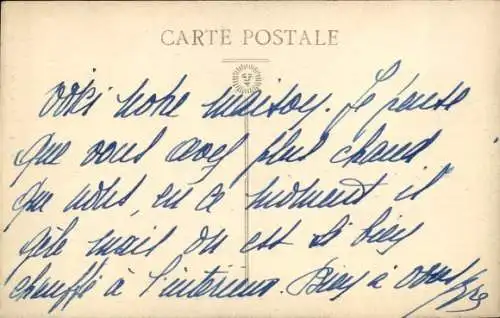 CARTE POSTALE
Voici notre maison. Je pense
que vous avez plus chaud
que nous, en ce moment il
gèle mais on est si bien
chauffé à l'intérieur. Bien à vous